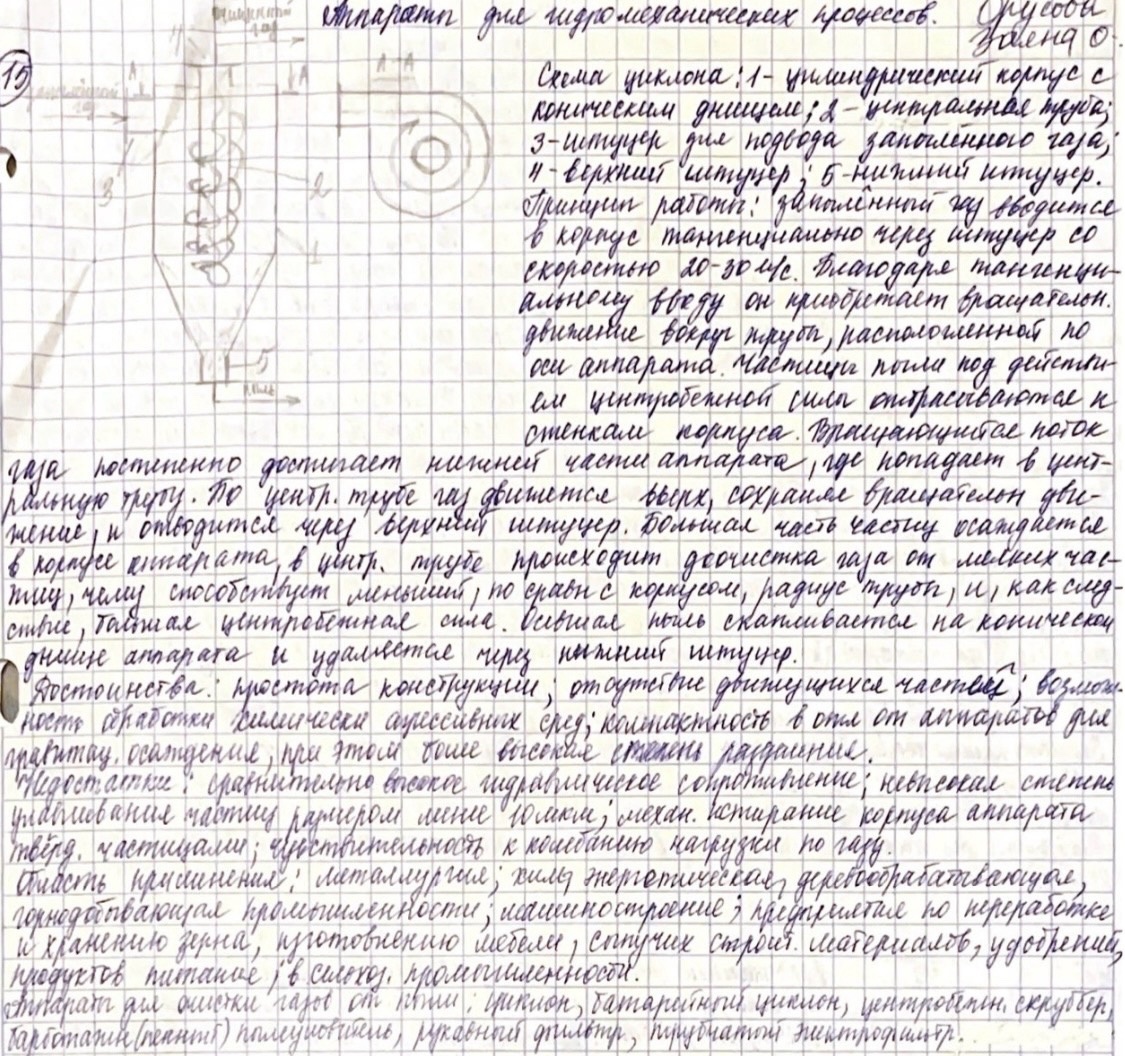 Аппараты для гидромеханических процессов.
15
очищенный
газ
запылённый
газ
А
А
А-А
4
3
2
1
5
пыль
Схема циклона: 1- цилиндрический корпус с
коническим днищем; 2- центральная труба;
3-штуцер для подвода запылённого газа;
4-верхний штуцер; 5-нижний штуцер.
Принцип работы: запылённый газ вводится
в корпус тангенциально через штуцер со
скоростью 20-30 м/с. Благодаря тангенци-
альному вводу он приобретает вращательн.
движение вокруг трубы, расположенной по
оси аппарата. Частицы пыли под действи-
ем центробежной силы отбрасываются к
стенкам корпуса. Вращающийся поток
газа постепенно достигает нижней части аппарата, где попадает в цент-
ральную трубу. По центр. трубе газ движется вверх, сохраняя вращательн дви-
жение, и отводится через верхний штуцер. Большая часть частиц осаждается
в корпусе аппарата, в центр. трубе происходит доочистка газа от мелких час-
тиц, чему способствует меньший, по сравн с корпусом, радиус трубы, и, как след-
ствие, большая центробежная сила. Осевшая пыль скапливается на коническом
днище аппарата и удаляется через нижний штуцер.
Достоинства: простота конструкции; отсутствие движущихся частей; возмож-
ность обработки химически агрессивных сред; компактность в отл от аппаратов для
гравитац. осаждения, при этом более высокая степень разделения.
Недостатки: сравнительно высокое гидравлическое сопротивление; невысокая степень
улавливания частиц размером менее 10мкм; механ. истирание корпуса аппарата
твёрд. частицами; чувствительность к колебанию нагрузки по газу.
Область применения: металлургия; хим, энергетическая, деревообрабатывающая,
горнодобывающая промышленности; машиностроение; предприятия по переработке
и хранению зерна, изготовлению мебели, сыпучих строит. материалов, удобрений,
продуктов питание, в сельхоз. промышленности.
Аппараты для очистки газов от пыли: циклон, батарейный циклон, центробежн. скруббер,
барботажн (пенный) пылеуловитель, рукавный фильтр, трубчатый электрофильтр.